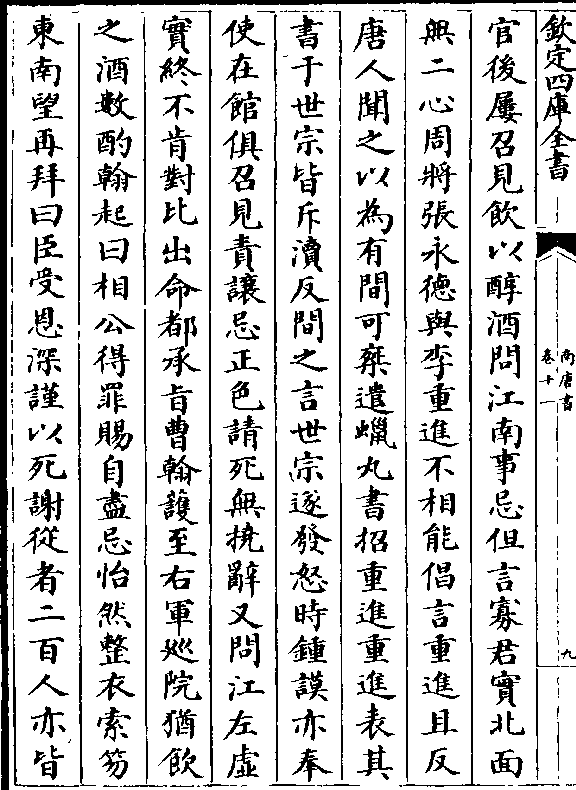 欽定四庫全書
南唐書
卷十一
九
官後屢召見飲以醇酒問江南事忌但言寡君實北面
無二心周將張永德與李重進不相能倡言重進且反
唐人聞之以為有間可乗遣蠟丸書招重進重進表其
書于世宗皆斥瀆反間之言世宗遂發怒時鍾謨亦奉
使在館俱召見責讓忌正色請死無撓辭又問江左虛
實終不肯對比出命都承旨曹翰䕶至右軍廵院猶飲
之酒數酌翰起曰相公得罪賜自盡忌怡然整衣索笏
東南望再拜曰臣受恩深謹以死謝從者二百人亦皆